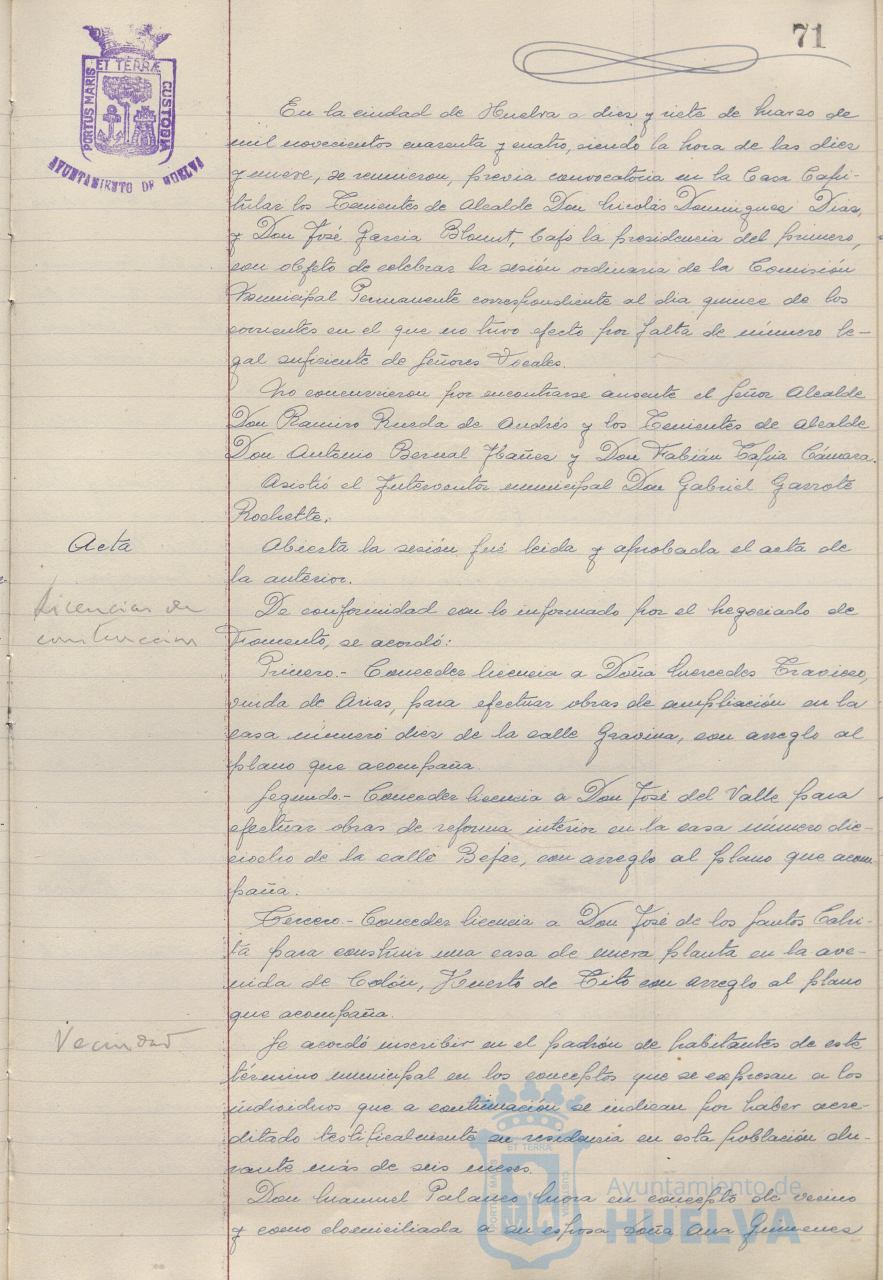 71
PORTUS MARIS ET TERRÆ CUSTODIA
AYUNTAMIENTO DE HUELVA
En la ciudad de Huelva a diez y siete de Marzo de
mil novecientos cuarenta y cuatro, siendo la hora de las diez
y nueve, se reunieron, previa convocatoria en la Casa Capi-
tular los Tenientes de Alcalde Don Nicolás Dominguez Dias,
y Don José Garcia Blount, bajo la presidencia del primero,
con objeto de celebrar la sesión ordinaria de la Comisión
Municipal Permanente correspondiente al dia quince de los
corrientes en el que no tuvo efecto por falta de número le-
gal suficiente de Señores Vocales.
No concurrieron por encontrarse ausente el Señor Alcalde
Don Ramiro Rueda de Andrés y los Tenientes de Alcalde
Don Antonio Bernal Ybañez y Don Fabián Tapia Cámara.
Asistió el Interventor municipal Don Gabriel Garrote
Rochette.
Acta
Abierta la sesión fué leida y aprobada el acta de
la anterior.
Licencias de
construccion
De conformidad con lo informado por el Negociado de
Fomento, se acordó:
Primero.- Conceder licencia a Doña Mercedes Travieso,
viuda de Arias, para efectuar obras de ampliación en la
casa número diez de la calle Gravina, con arreglo al
plano que acompaña.
Segundo.- Conceder licencia a Don José del Valle para
efectuar obras de reforma interior en la casa número die-
ciocho de la calle Bejar, con arreglo al plano que acom
paña.
Tercero.- Conceder licencia a Don José de los Santos Cabri-
ta para construir una casa de nueva planta en la ave-
nida de Colón, Huerto de Tito con arreglo al plano
que acompaña.
Vecindad
Se acordó inscribir en el padrón de habitantes de este
término municipal en los conceptos que se expresan a los
individuos que a continuación se indican por haber acre-
ditado testificalmente su residencia en esta población du-
rante más de seis meses.
Don Manuel Palanco Mora en concepto de vecino
y como domiciliada a su esposa Doña Ana Gimenez
Ayuntamiento de
HUELVA